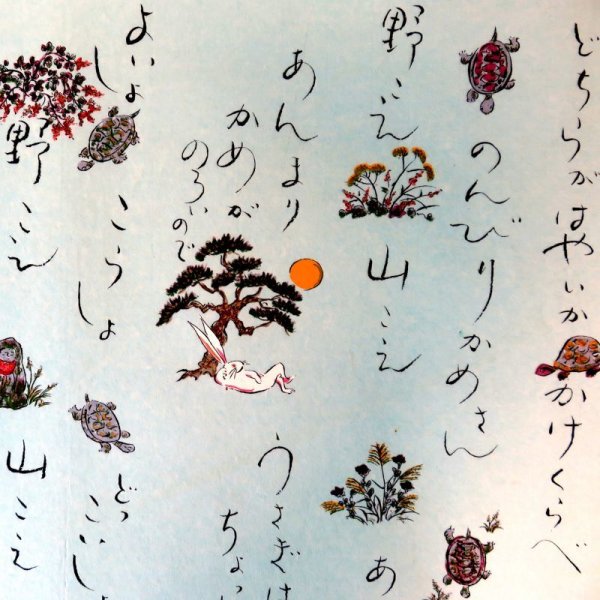 どちらがはやいかかけくらべ
のんびりかめさん
野こえ山こえ あ
あんまり
かめが
のろいので
うさぎは
ちょい
よいしょ
こらしょ
どっこいしょ
野こえ山こえ